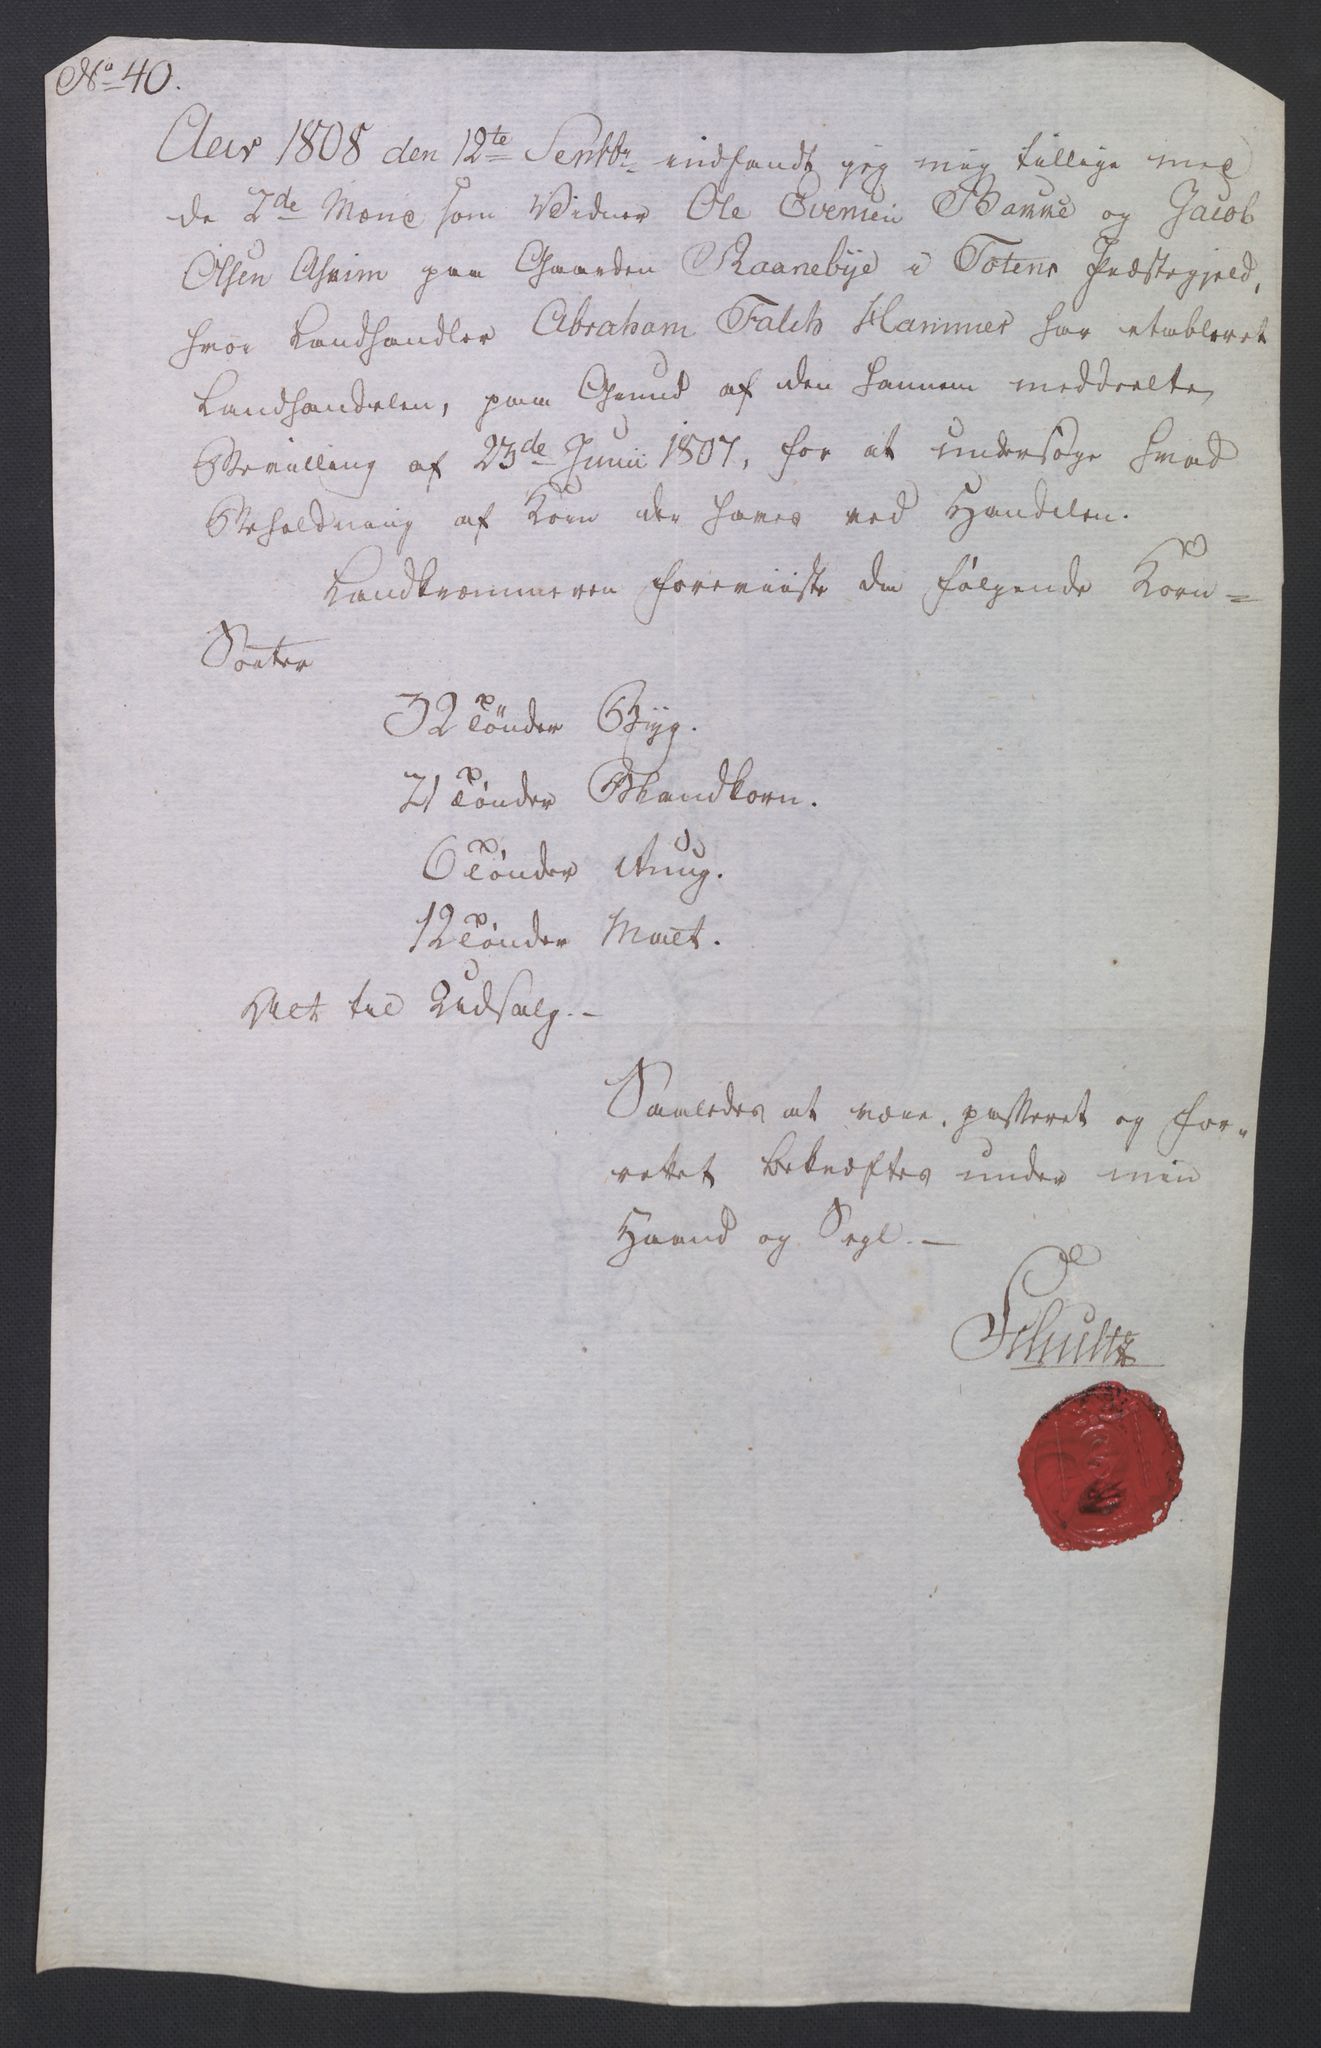 No 40.
Aar 1808 den 12te Septbr indfandt jeg mig tillige med
de 2de Mænd som Vidner Ole Evensen Bakke og Jacob
Olsen Asvim paa Gaarden Raanebÿe i Totens Præstegjeld,
hvor Landhandler Abraham Falch Hammer har etableret
Landhandelen, paa Grund af den hannem meddeelte
Bevilling af 23de Junii 1807, for at undersøge hvad
Beholdning af Korn der haves ved Handelen.
Landkræmmeren foreviiste da følgende Korn-
Sorter
32 Tönder Bÿg.
21 Tönder Blandkorn.
6 Tönder Rug.
12 Tönder Malt.
Alt til Udsalg. —
Saaledes at være passeret og for-
rettet bekræftes under min
Haand og Segl. —
Schultz